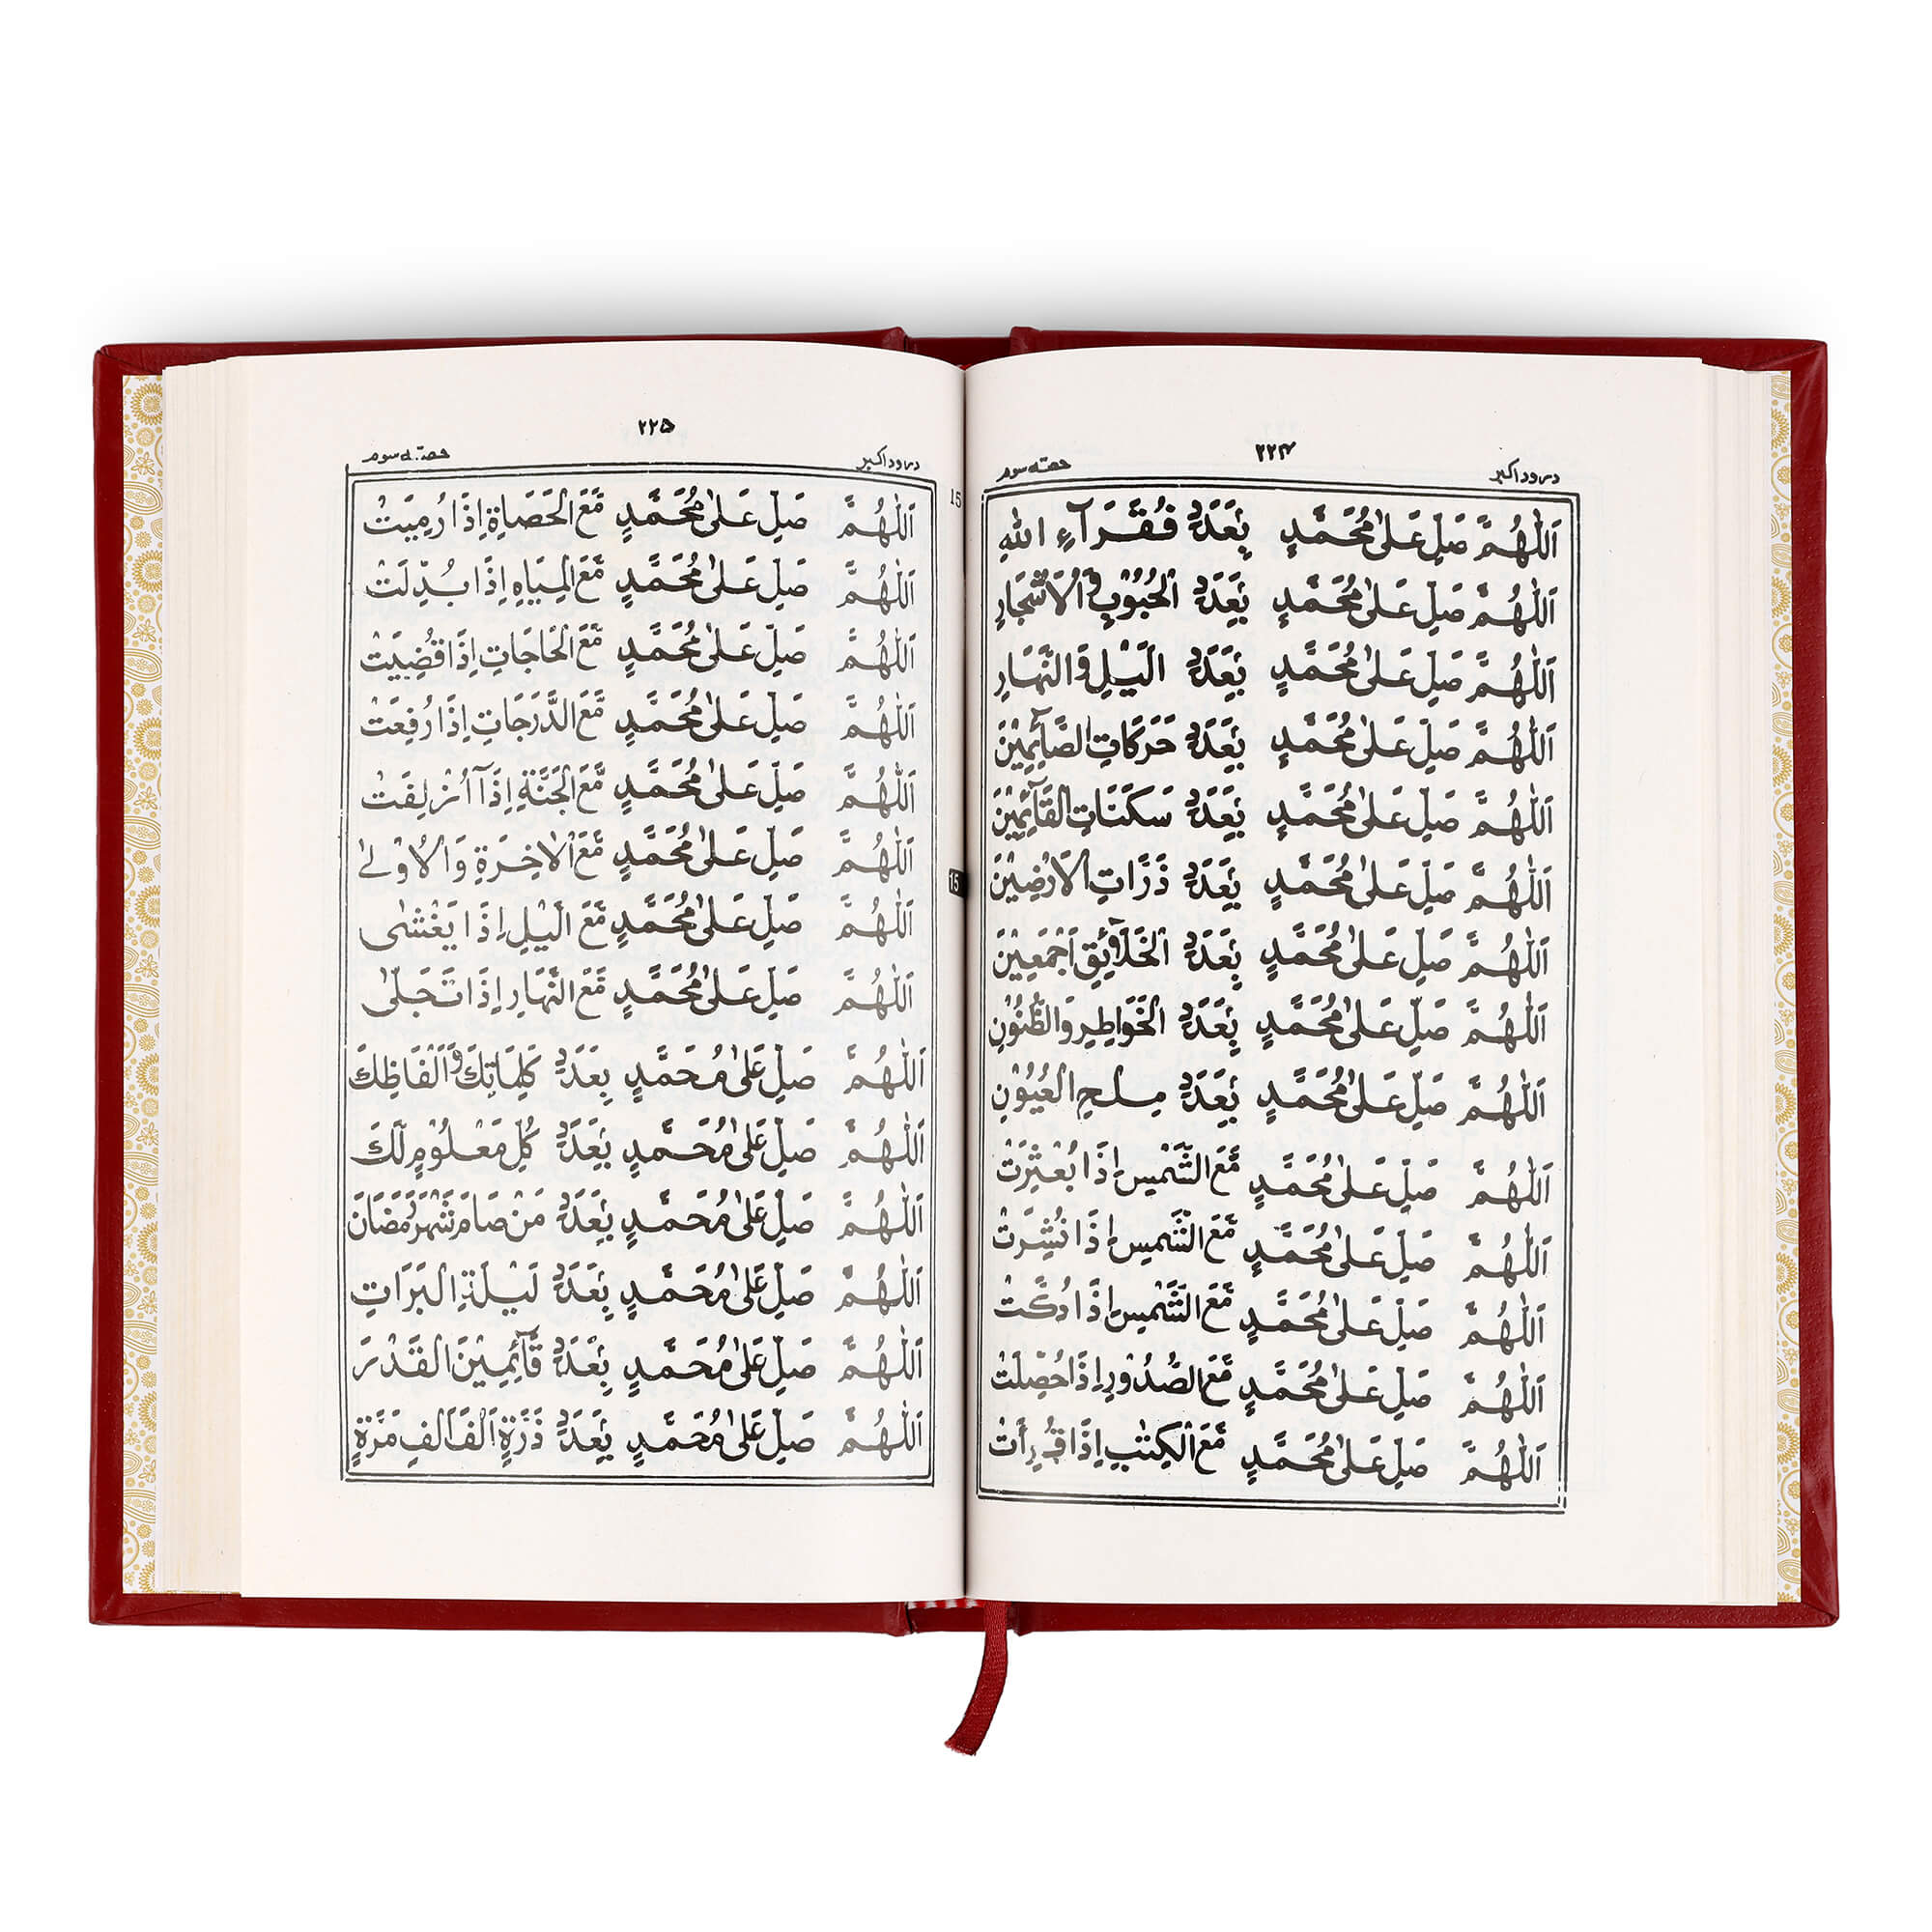 درود اکبر ۲۲۴ حصّہ سوم
اَللّٰهُمَّ صَلِّ عَلٰى مُحَمَّدٍ بِعَدَدِ فُقَرَآءِ اللهِ
اَللّٰهُمَّ صَلِّ عَلٰى مُحَمَّدٍ بِعَدَدِ الْحُبُوْبِ فِى الْاَشْجَارِ
اَللّٰهُمَّ صَلِّ عَلٰى مُحَمَّدٍ بِعَدَدِ الَّيْلِ وَالنَّهَارِ
اَللّٰهُمَّ صَلِّ عَلٰى مُحَمَّدٍ بِعَدَدِ حَرَكَاتِ الصَّآئِمِيْنَ
اَللّٰهُمَّ صَلِّ عَلٰى مُحَمَّدٍ بِعَدَدِ سَكَنَاتِ الْقَآئِمِيْنَ
اَللّٰهُمَّ صَلِّ عَلٰى مُحَمَّدٍ بِعَدَدِ ذَرَّاتِ الْاَرْضِيْنَ
اَللّٰهُمَّ صَلِّ عَلٰى مُحَمَّدٍ بِعَدَدِ الْخَلَآئِقِ اَجْمَعِيْنَ
اَللّٰهُمَّ صَلِّ عَلٰى مُحَمَّدٍ بِعَدَدِ الْخَوَاطِرِ وَالظُّنُوْنِ
اَللّٰهُمَّ صَلِّ عَلٰى مُحَمَّدٍ بِعَدَدِ مِلحِ الْعُيُوْنِ
اَللّٰهُمَّ صَلِّ عَلٰى مُحَمَّدٍ مَّعَ الشَّمْسِ اِذَا بُعْثِرَتْ
اَللّٰهُمَّ صَلِّ عَلٰى مُحَمَّدٍ مَّعَ الشَّمْسِ اِذَا نُشِرَتْ
اَللّٰهُمَّ صَلِّ عَلٰى مُحَمَّدٍ مَّعَ الشَّمْسِ اِذَا دُكَّتْ
اَللّٰهُمَّ صَلِّ عَلٰى مُحَمَّدٍ مَّعَ الصُّدُوْرِ اِذَا حُصِّلَتْ
اَللّٰهُمَّ صَلِّ عَلٰى مُحَمَّدٍ مَّعَ الْكِتٰبِ اِذَا قُرِأَتْ
درود اکبر ۲۲۵ حصّہ سوم
اَللّٰهُمَّ صَلِّ عَلٰى مُحَمَّدٍ مَّعَ الْحَصَاةِ اِذَا رُمِيَتْ
اَللّٰهُمَّ صَلِّ عَلٰى مُحَمَّدٍ مَّعَ الْمِيَاهِ اِذَا بُدِّلَتْ
اَللّٰهُمَّ صَلِّ عَلٰى مُحَمَّدٍ مَّعَ الْحَاجَاتِ اِذَا قُضِيَتْ
اَللّٰهُمَّ صَلِّ عَلٰى مُحَمَّدٍ مَّعَ الدَّرَجَاتِ اِذَا رُفِعَتْ
اَللّٰهُمَّ صَلِّ عَلٰى مُحَمَّدٍ مَّعَ الْجَنَّةِ اِذَآ اُزْلِفَتْ
اَللّٰهُمَّ صَلِّ عَلٰى مُحَمَّدٍ مَّعَ الْاٰخِرَةِ وَالْاُوْلٰى
اَللّٰهُمَّ صَلِّ عَلٰى مُحَمَّدٍ مَّعَ الَّيْلِ اِذَا يَغْشٰى
اَللّٰهُمَّ صَلِّ عَلٰى مُحَمَّدٍ مَّعَ النَّهَارِ اِذَا تَجَلّٰى
اَللّٰهُمَّ صَلِّ عَلٰى مُحَمَّدٍ بِعَدَدِ كَلِمَاتِكَ وَاَلْفَاظِكَ
اَللّٰهُمَّ صَلِّ عَلٰى مُحَمَّدٍ بِعَدَدِ كُلِّ مَعْلُوْمٍ لَّكَ
اَللّٰهُمَّ صَلِّ عَلٰى مُحَمَّدٍ بِعَدَدِ مَنْ صَامَ شَهْرَ رَمَضَانَ
اَللّٰهُمَّ صَلِّ عَلٰى مُحَمَّدٍ بِعَدَدِ لَيْلَةِ الْبَرَاتِ
اَللّٰهُمَّ صَلِّ عَلٰى مُحَمَّدٍ بِعَدَدِ قَآئِمِيْنَ الْقَدْرَ
اَللّٰهُمَّ صَلِّ عَلٰى مُحَمَّدٍ بِعَدَدِ ذَرَّةٍ اَلْفَ اَلْفِ مَرَّةٍ
15
15